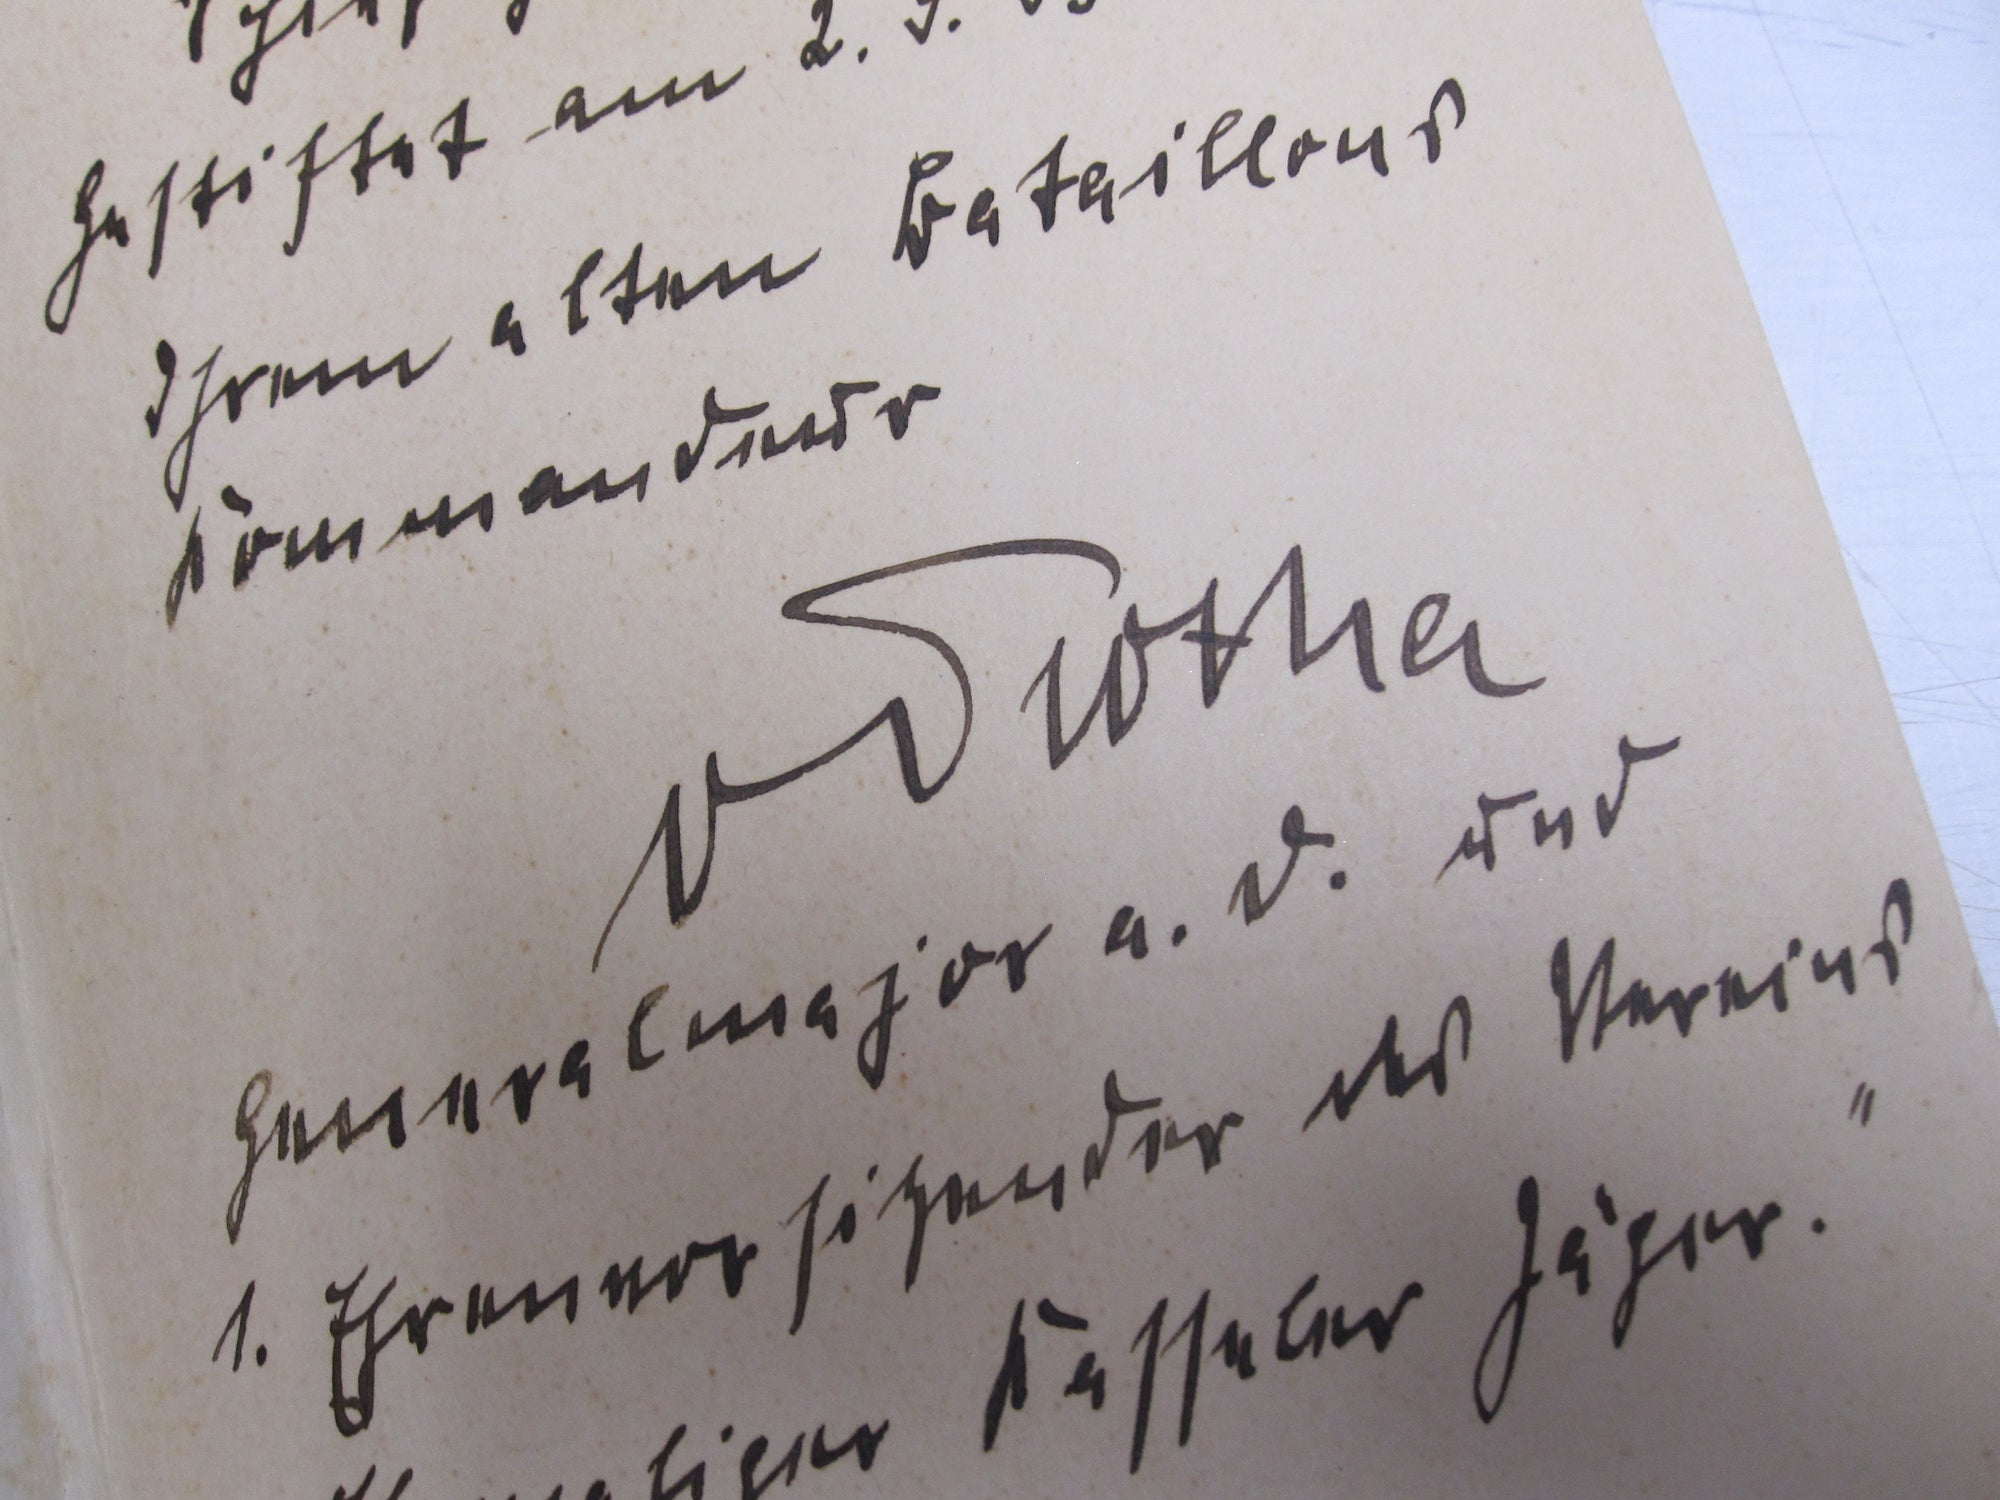 Gestiftet am 2. 9.
Ihrem alten Bataillons
Kommandeur
v Trotha
Generalmajor a. D. und
1. Ehrenvorsitzender des Vereins
Ehemaliger Kasseler Jäger."